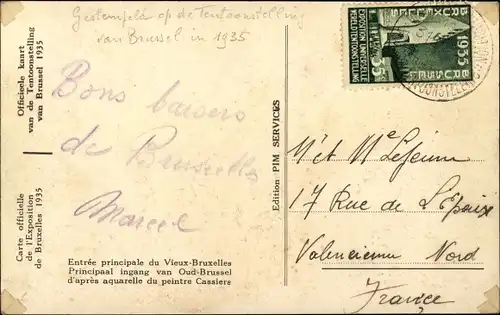 Gestempeld op de Tentoonstelling
van Brussel in 1935
Officieele kaart
van de Tentoonstelling
van Brussel 1935
Carte officielle
de l'Exposition
de Bruxelles 1935
Bons baisers
de Bruxelles
Marcel
Entrée principale du Vieux-Bruxelles
Principaal ingang van Oud-Brussel
d'après aquarelle du peintre Cassiers
Edition PIM SERVICES
BRUXELLES
1935
BRUSSEL
EXPOSITION UNIVERSELLE
WERELDTENTOONSTELLING
35c
Mr et Me Lejeune
17 Rue de L'Epaix
Valencienne Nord
France